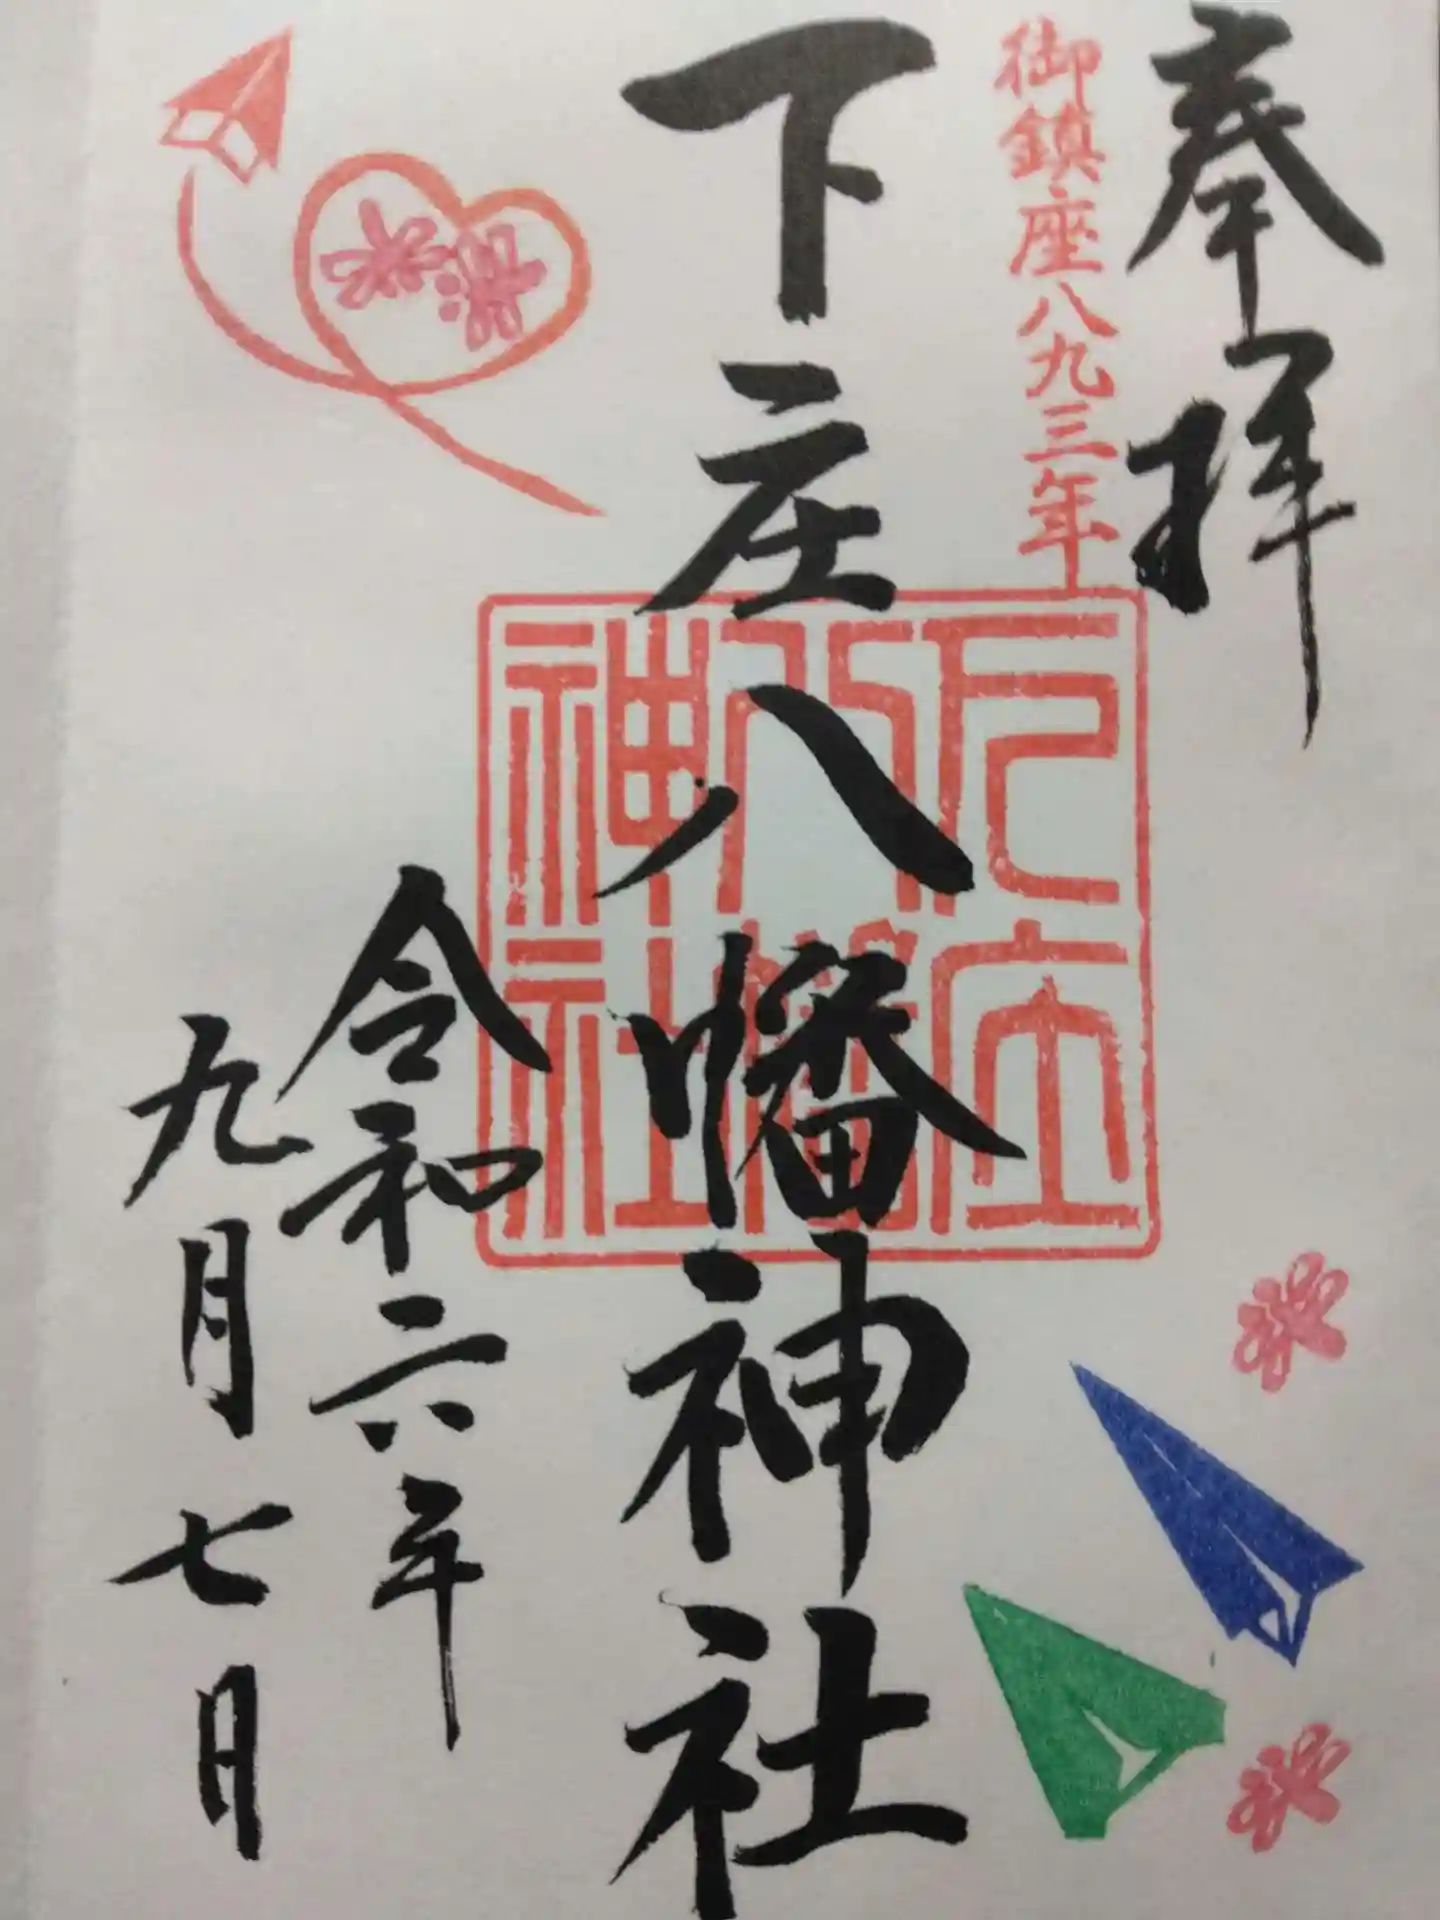 奉拝
御鎮座八九三年
下庄八幡神社
下庄
八幡
神社
令和六年
九月七日